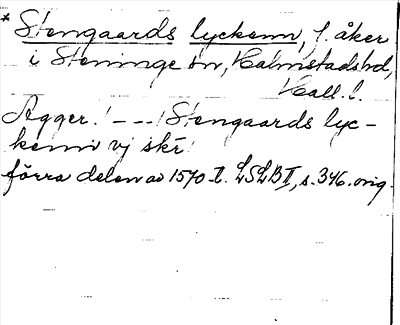 * Stengaards lyckenn, f. åker
i Steninge sn, Halmstads hd,
Hall. l.
Agger. ! --- ! Stengaards lyc-
kenn vj skr !
förra delen av 1570-t. LSLB II, s. 346. orig.